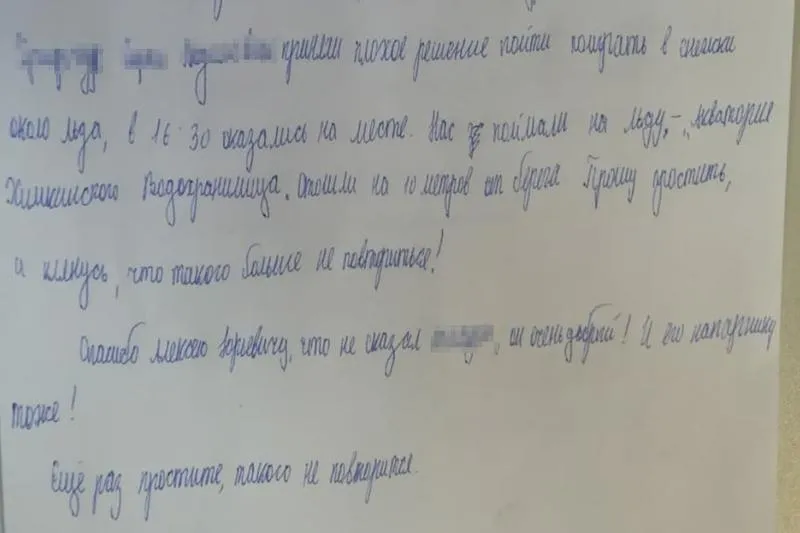 приняли плохое решение пойти поиграть в снежки
около льда, в 16:30 оказались на месте. Нас поймали на льду, - "Акватория
Химкинского Водохранилища. Отошли на 10 метров от берега Прошу простить,
и клянусь, что такого больше не повториться!
Спасибо Алексею Юрьевичу, что не сказал , он очень добрый! И его напарнику
тоже!
Ещё раз простите, такого не повторится.